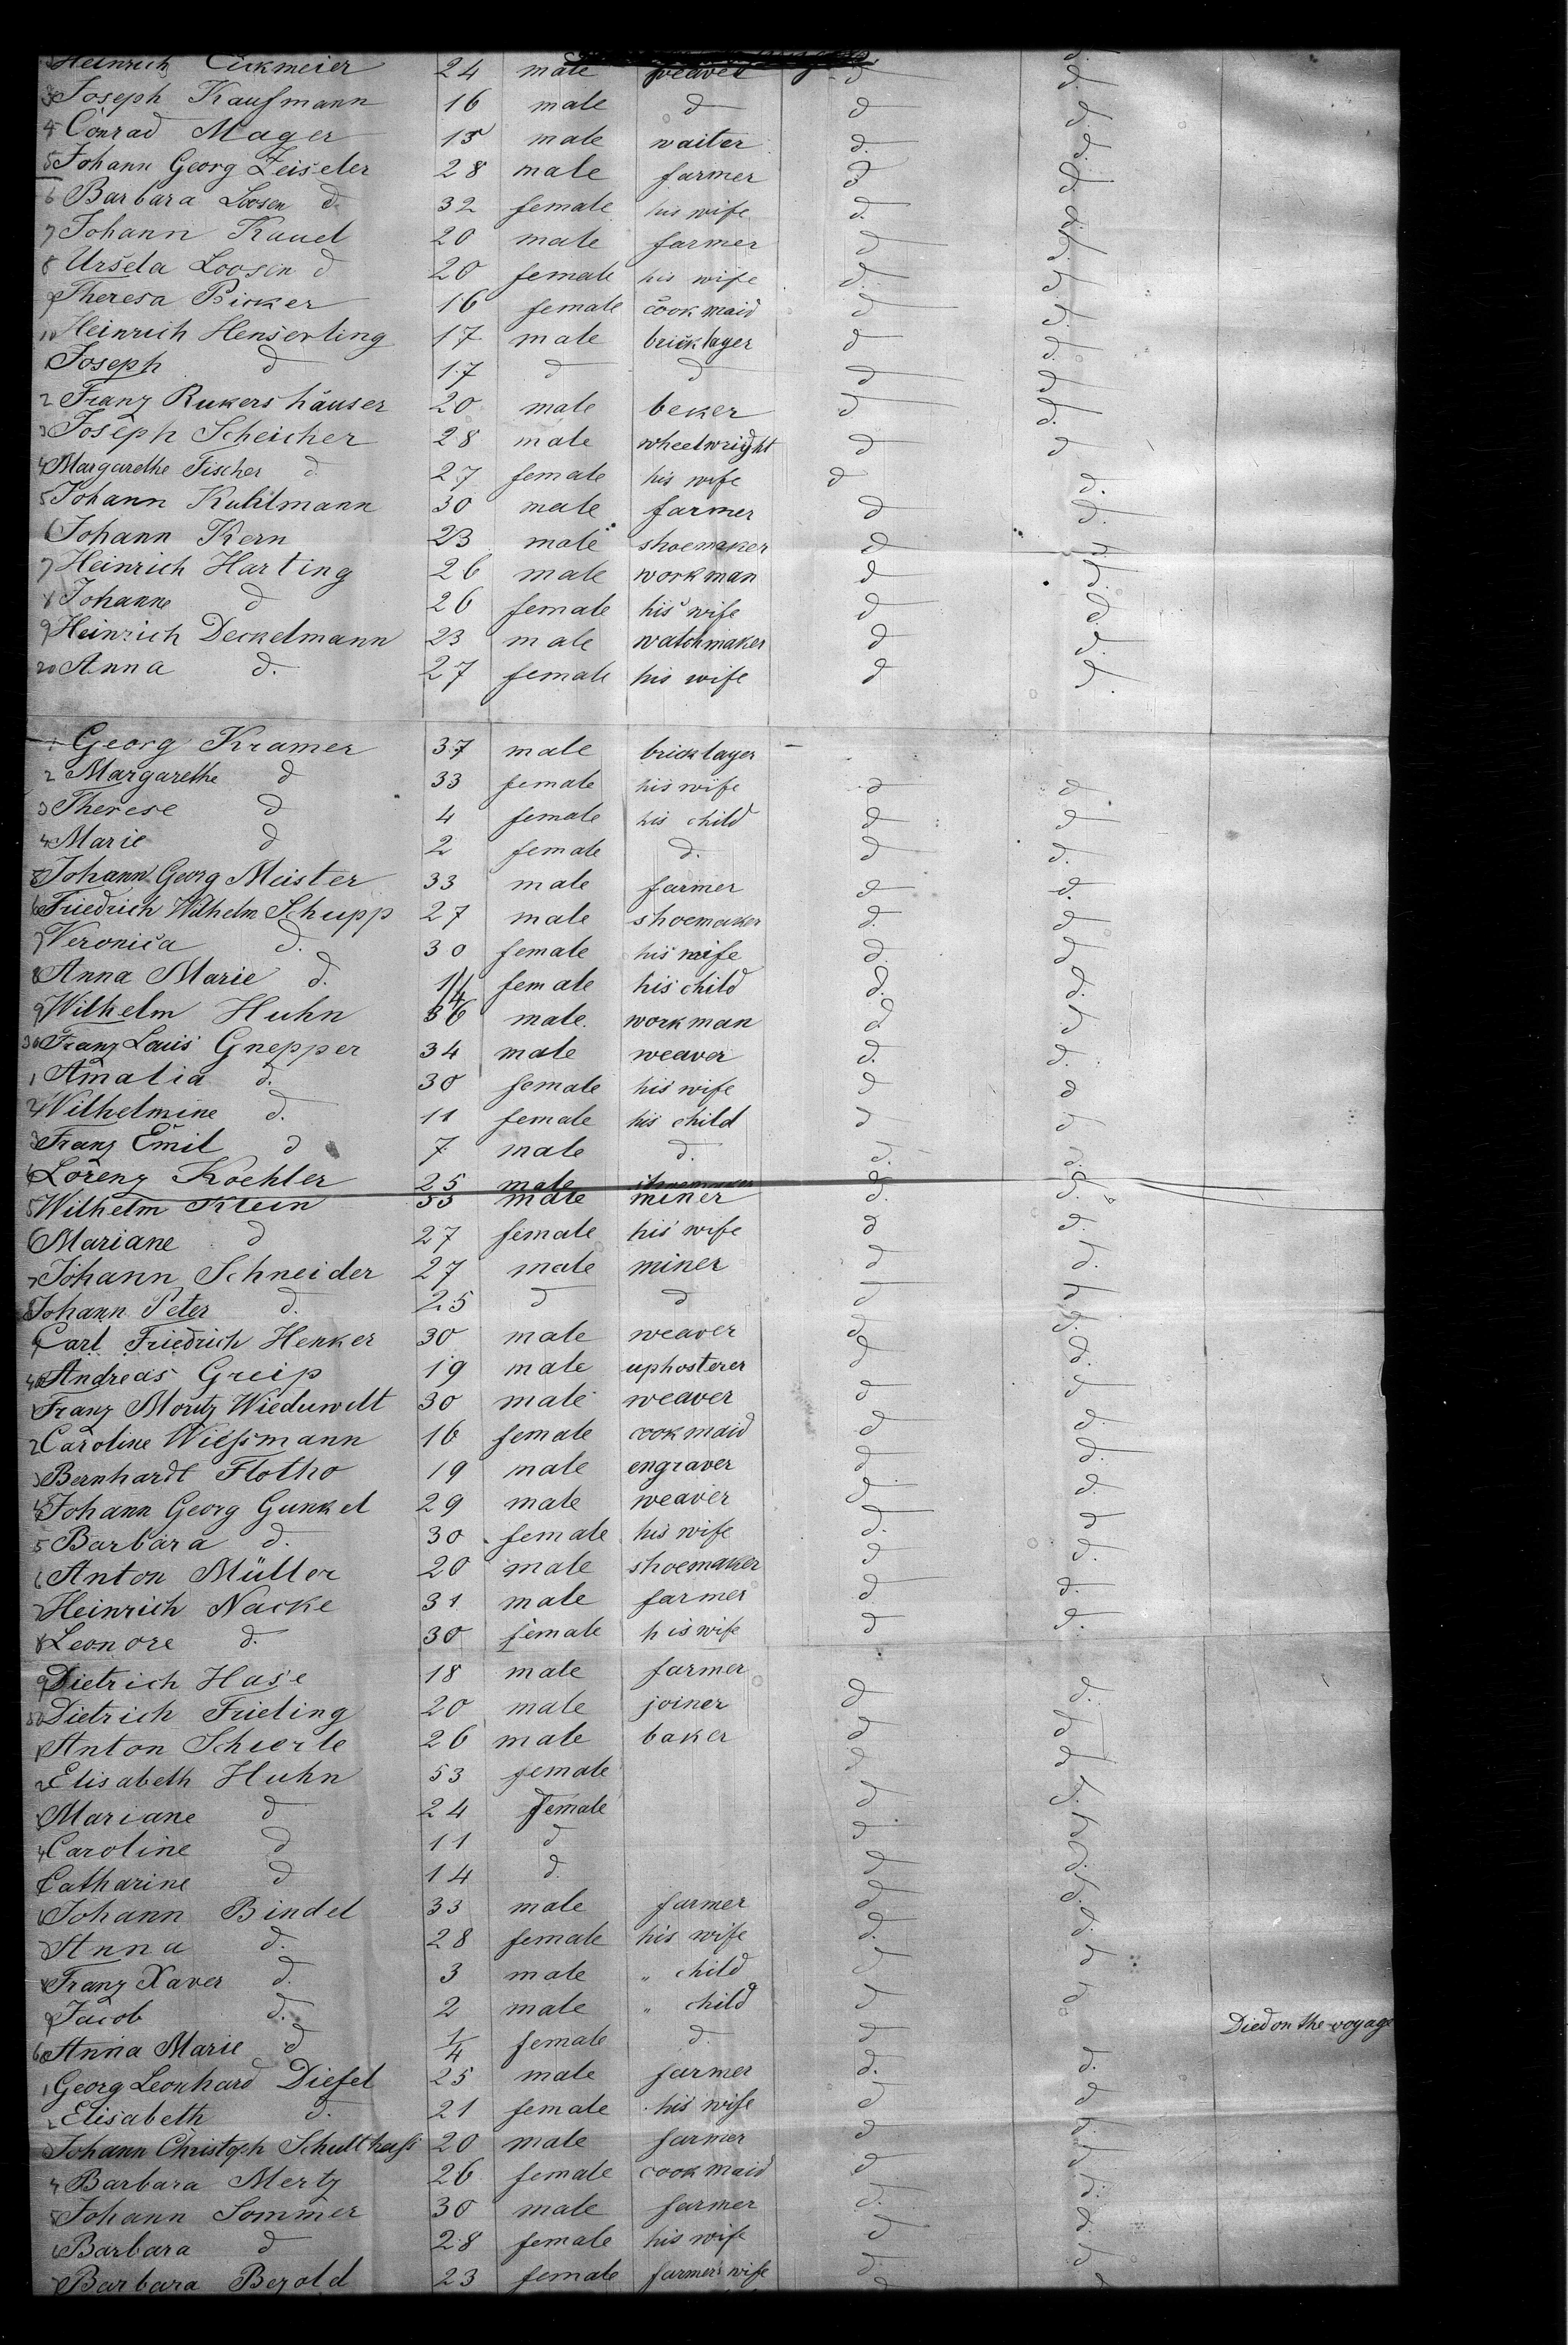 Heinrich Eickmeier 24 male weaver d d
3 Joseph Kaufmann 16 male d d d
4 Conrad Mager 15 male waiter d. d
5 Johann Georg Zeiseler 28 male farmer d d
6 Barbara Loosen d 32 female his wife d. d
7 Johann Kauel 20 male farmer d d
8 Ursela Loosen d 20 female his wife d. d
9 Theresa Bicker 16 female cook maid d d
10 Heinrich Henserling 17 male bricklayer d d
1 Joseph d 17 d d d d
2 Franz Rukershäuser 20 male beker d d
3 Joseph Scheicher 28 male wheelwright d d
4 Margarethe Fischer d 27 female his wife d d.
5 Johann Kuhlmann 30 male farmer d d
6 Johann Kern 23 male shoemaker d d
7 Heinrich Harting 26 male workman d d
8 Johanne d 26 female his wife d d
9 Heinrich Deckelmann 23 male watchmaker d d.
20 Anna d. 27 female his wife d d
1 Georg Kramer 37 male bricklayer
2 Margarethe d 33 female his wife d d
3 Therese d 4 female his child d d
4 Marie d 2 female d. d d.
5 Johann Georg Meister 33 male farmer d d.
6 Friedrich Wilhelm Schupp 27 male shoemaker d. d
7 Veronica d. 30 female his wife d. d
8 Anna Marie d. 1/4 female his child d. d.
9 Wilhelm Huhn 36 male. workman d d
30 Franz Louis Gnepper 34 male weaver d. d.
1 Amalia d. 30 female his wife d d
2 Wilhelmine d. 11 female his child d d
3 Franz Emil d 7 male d. d. d.
4 Lorenz Koehler 25 male shoemaker d. d
5 Wilhelm Klein 33 male miner d. d
6 Mariane d 27 female his wife d d.
7 Johann Schneider 27 male miner d d.
8 Johann Peter d. 25 d d d d
9 Carl Friedrich Henker 30 male weaver d d
40 Andreas Greip 19 male uphosterer d d.
1 Franz Moritz Wieduwilt 30 male weaver d d
2 Caroline Wießmann 16 female cook maid d d.
3 Bernhardt Flotho 19 male engraver d d.
4 Johann Georg Gunkel 29 male weaver d d.
5 Barbara d. 30 female his wife d. d
6 Anton Müller 20 male shoemaker d d.
7 Heinrich Nacke 31 male farmer d d.
8 Leonore d. 30 female his wife d d.
9 Dietrich Hase 18 male farmer
50 Dietrich Frieling 20 male joiner d d.
1 Anton Schierle 26 male baker d d
2 Elisabeth Huhn 53 female d d
3 Mariane d 24 female d d
4 Caroline d 11 d d d
5 Catharine d 14 d. d d
6 Johann Bindel 33 male farmer d d
7 Anna d. 28 female his wife d. d
8 Franz Xaver d. 3 male " child d d
9 Jacob d. 2 male " child d d
60 Anna Marie d 1/4 female d. d Died on the voyage
1 Georg Leonhard Diesel 25 male farmer d. d.
2 Elisabeth d. 21 female his wife d d
3 Johann Christoph Schultheiß 20 male farmer d d
4 Barbara Mertz 26 female cook maid d d
5 Johann Sommer 30 male farmer d. d.
6 Barbara d 28 female his wife d d
7 Barbara Bezold 23 female farmers wife d d